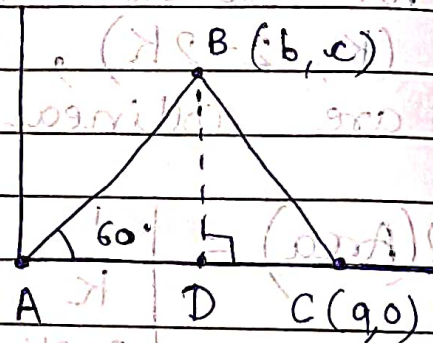 B (b, c)
60°
A D C (9,0)